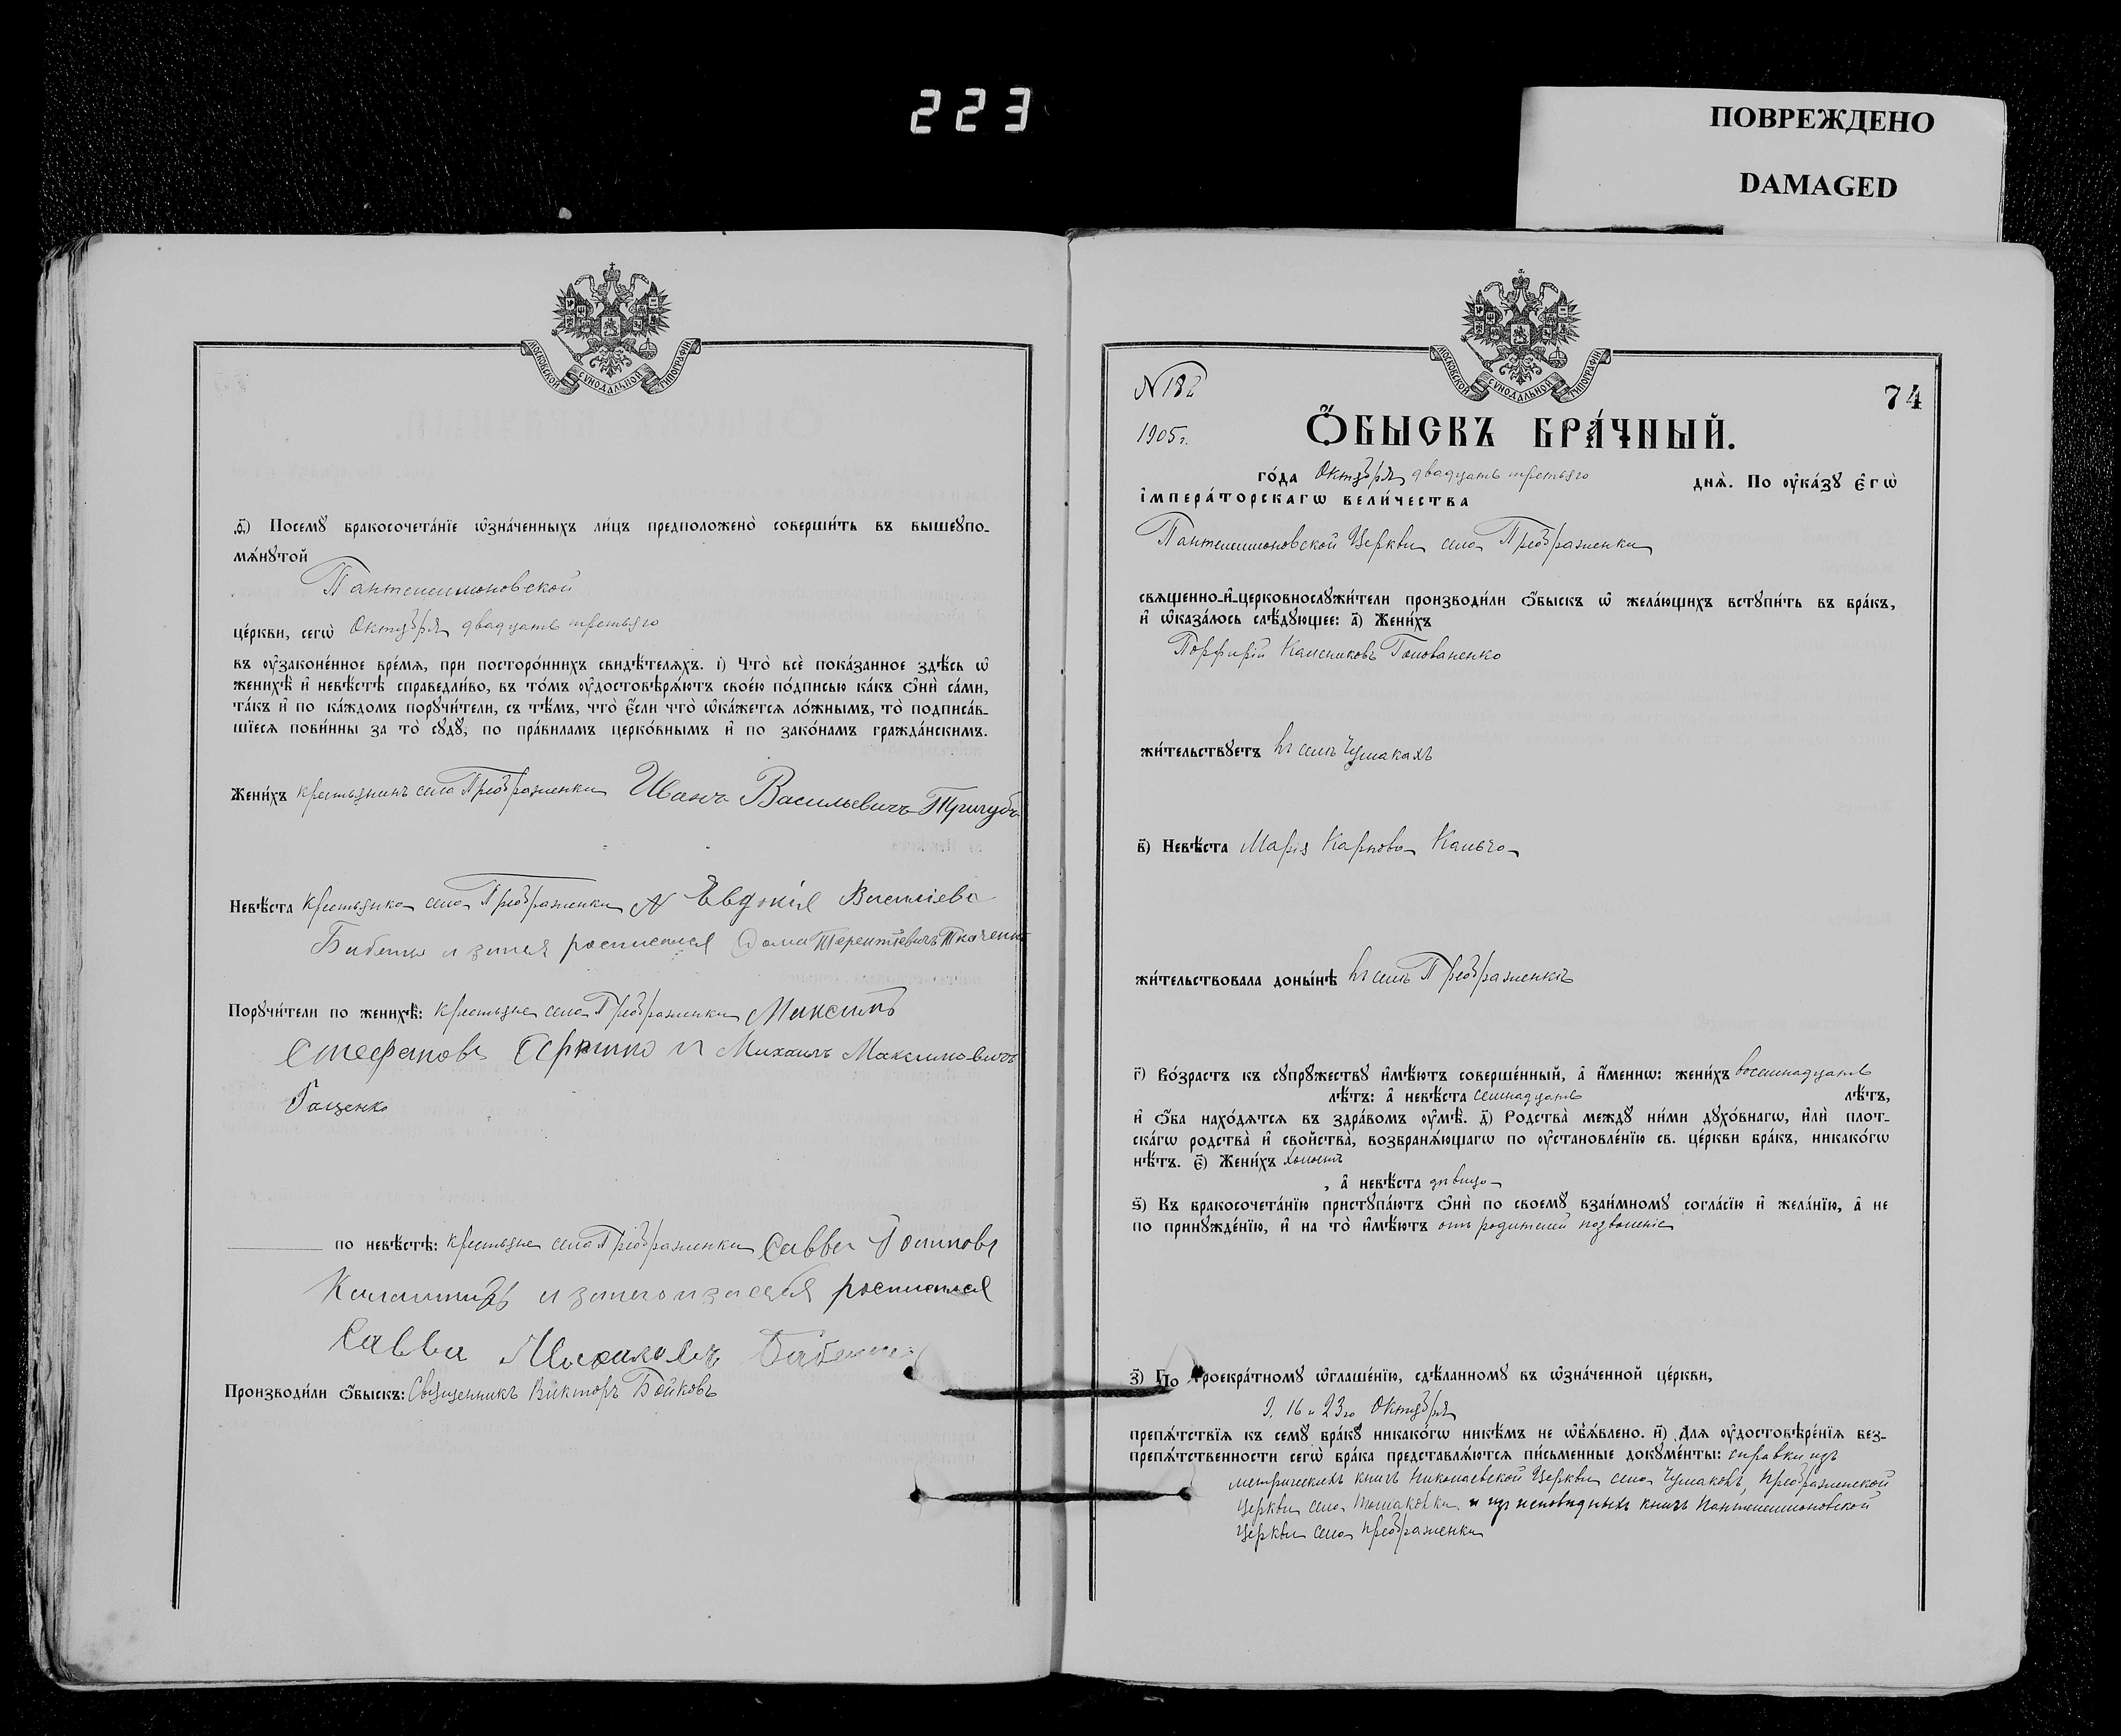 223
ПОВРЕЖДЕНО
DAMAGED
МОСКОВСКОЙ СѴНОДАЛЬНОЙ ТИПОГРАФІИ
ѳ҃) Посемꙋ бракосочета́нїе ѡ҆зна́ченныхъ ли́цъ предположено̀ соверши́ть въ вышеꙋпо-
мѧ́нꙋтой
Пантелеимоновской
це́ркви, сегѡ̀ Октября двадцать третьяго
въ оу҆законе́нное вре́мѧ, при посторо́ннихъ свидѣ́телѧхъ. і҃) Что̀ всѐ пока́занное здѣ́сь ѡ҆
женихѣ̀ и҆ невѣ́стѣ справедли́во, въ то́мъ оу҆достовѣрѧ́ютъ свое́ю по́дписью ка́къ ѻ҆нѝ са́ми,
та́къ и҆ по ка́ждомъ порꙋчи́тели, съ тѣ́мъ, что̀ є҆́сли что̀ ѡ҆ка́жетсѧ ло́жнымъ, то̀ подписа́в-
шїесѧ пови́нны за то̀ сꙋдꙋ̀, по пра́виламъ церко́внымъ и҆ по зако́намъ гражда́нскимъ.
Жени́хъ крестьянинъ села Преображенки Иванъ Васильевичъ Тригубъ
Невѣ́ста крестьянка села Преображенки Евдокія Василіева
Бабенко и за нея росписался Фома Терентіевичъ Ткаченко
Порꙋчи́тели по женихѣ̀: крестьяне села Преображенки Максимъ
Стефановъ и Михаилъ Максимовичъ
Гаценко
по невѣ́стѣ: крестьяне села Преображенки Савва
и за него и за себя росписался
Савва Бабенко
Производи́ли ѻ҆́быскъ: Священникъ Викторъ Бойковъ
МОСКОВСКОЙ СѴНОДАЛЬНОЙ ТИПОГРАФІИ
N 182
74
1905 г.
Ѻ҆́БЫСКЪ БРА́ЧНЫЙ.
го́да Октября двадцать третьяго днѧ̀. По оу҆ка́зꙋ є҆гѡ̀
і҆мпера́торскагѡ вели́чества
Пантелеимоновской Церкви села Преображенки
свѧщенно-и҆-церковнослꙋжи́тели производи́ли ѻ҆́быскъ ѡ҆ жела́ющихъ встꙋпи́ть въ бра́къ,
и҆ ѡ҆каза́лось слѣ́дꙋющее: а҃) Жени́хъ
Порфирій Калениковъ Голованенко
жи́тельствꙋетъ въ селѣ Чумакахъ
в҃) Невѣ́ста Марія Карпова
жи́тельствовала доны́нѣ въ селѣ Преображенкѣ
г҃) Во́зрастъ къ сꙋпрꙋ́жествꙋ и҆мѣ́ютъ соверше́нный, а҆ и҆́менно: жени́хъ восемнадцать
лѣ́тъ: а҆ невѣ́ста семнадцать лѣ́тъ,
и҆ ѻ҆́ба нахо́дѧтсѧ въ здра́вомъ оу҆мѣ̀. д҃) Родства̀ междꙋ̀ ни́ми дꙋхо́внагѡ, и҆лѝ плот-
ска́гѡ родства̀ и҆ свойства̀, возбранѧ́ющагѡ по оу҆становле́нїю св. це́ркви бра́къ, никако́гѡ
нѣ́тъ. є҃) Жени́хъ холостъ
, а҆ невѣ́ста дѣвица
ѕ҃) Къ бракосочета́нїю пристꙋпа́ютъ ѻ҆нѝ по своемꙋ̀ взаи́мномꙋ согла́сїю и҆ жела́нїю, а҆ не
по принꙋжде́нїю, и҆ на то̀ и҆мѣ́ютъ отъ родителей позволеніе
з҃) По троекра́тномꙋ ѡ҆глаше́нїю, сдѣ́ланномꙋ въ ѡ҆зна́ченной це́ркви,
9, 16 и 23го Октября
препѧ́тствїѧ къ семꙋ̀ бра́кꙋ никако́гѡ никѣ́мъ не ѡ҆б̾ѧ́влено. и҃) Длѧ оу҆достовѣре́нїѧ без-
препѧ́тственности сегѡ̀ бра́ка представлѧ́ютсѧ пи́сьменные докꙋме́нты: справки изъ
метрическихъ книгъ Николаевской Церкви села Чумаковъ, Преображенской
Церкви села Томаковки и изъ исповѣдныхъ книгъ Пантелеимоновской
Церкви села Преображенки